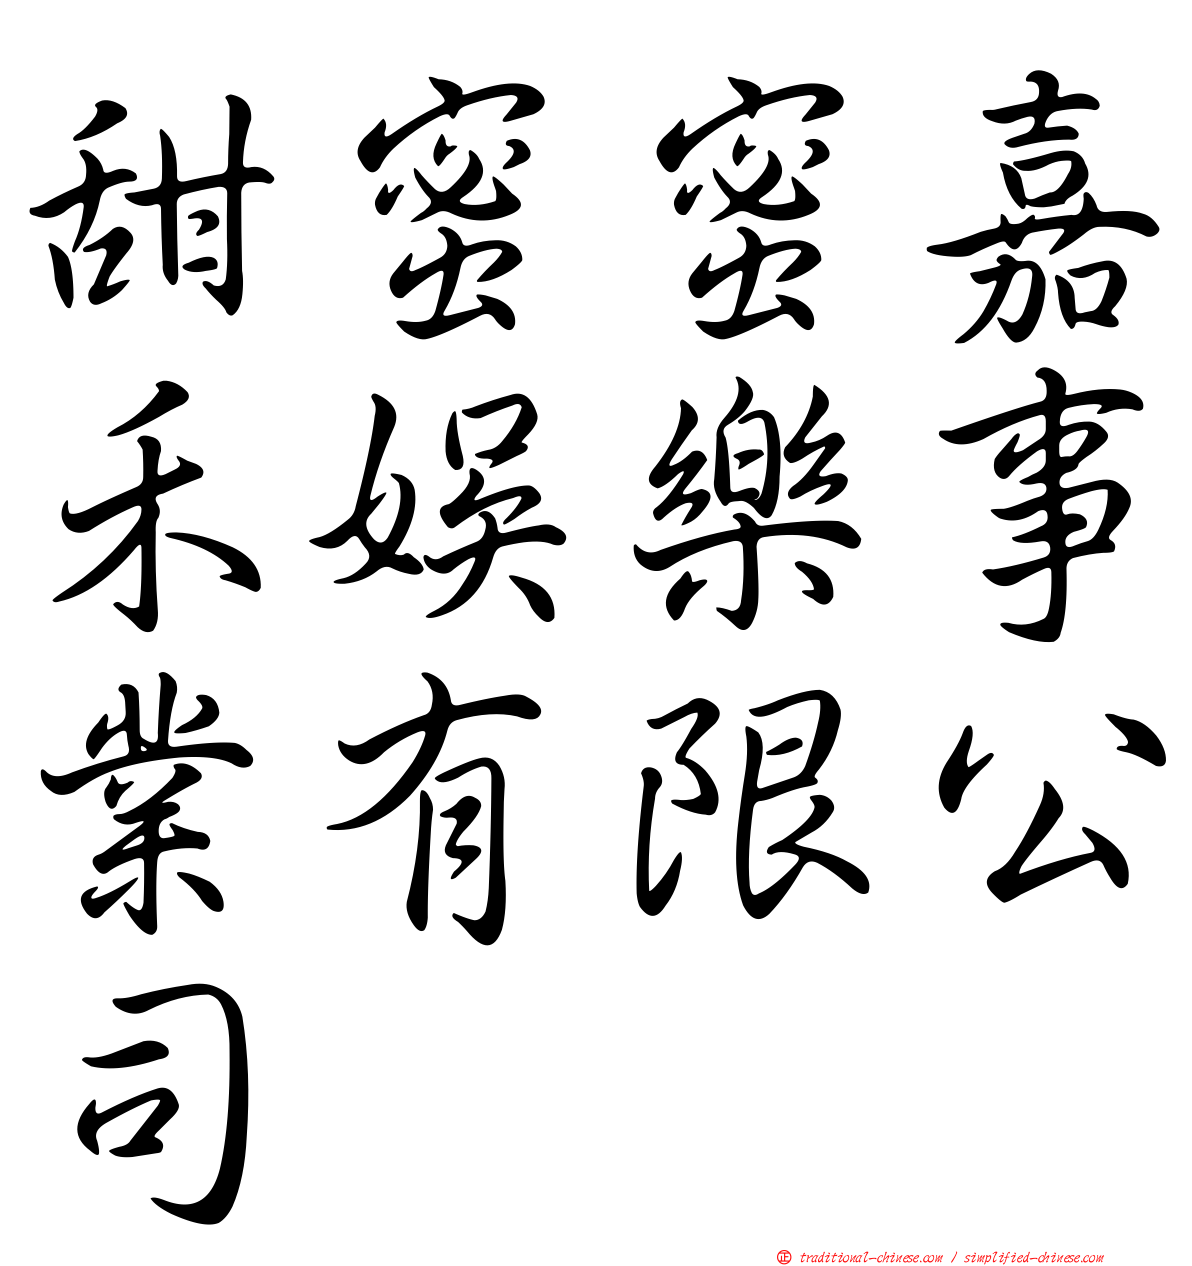 甜蜜蜜嘉
禾娛樂事
業有限公
司
正 traditional-chinese.com / simplified-chinese.com